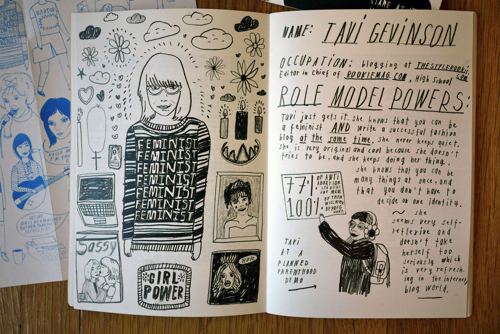 FEMINIST
FEMINIST
FEMINIST
FEMINIST
FEMINIST
FEMINIST
FEMINIST
Sassy
GIRL
POWER
NAME: TAVI GEVINSON
OCCUPATION: blogging at THESTYLEROOKIE.COM
Editor in chief of ROOKIEMAG.COM, High School
ROLE MODEL POWERS:
Tavi just gets it. She knows that you can be
a feminist AND write a successful fashion
blog at the same time. She never keeps quiet,
she is very original and cool because she doesn't
try to be, and she keeps doing her thing.
She knows that you can be
many things at once, and
that you don't have to
decide on one identity.
~ She
seems very self-
reflexive and
doesn't take
herself too
seriously which
is very refresh-
ing in the internet
blog world.
77%
100%
TAVI
AT A
PLANNED
PARENTHOOD
DEMO